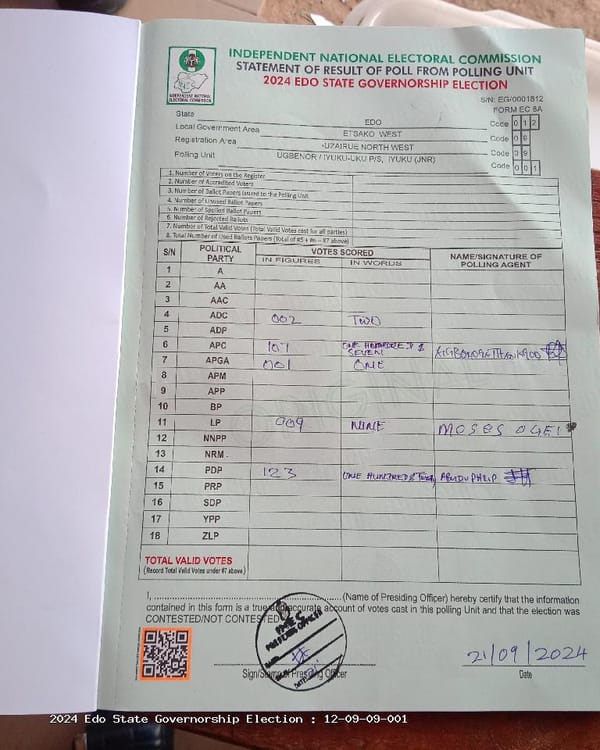 INDEPENDENT NATIONAL ELECTORAL COMMISSION
STATEMENT OF RESULT OF POLL FROM POLLING UNIT
2024 EDO STATE GOVERNORSHIP ELECTION
INDEPENDENT NATIONAL
ELECTORAL COMMISSION
S/N: EG/0001812
FORM EC 8A
State EDO Code 012
Local Government Area ETSAKO WEST Code
Registration Area UZAIRUE NORTH WEST Code
Polling Unit UGBENOR / IYUKU-UKU P/S, IYUKU (JNR) Code 001
1. Number of Voters on the Register
2. Number of Accredited Voters
3. Number of Ballot Papers Issued to the Polling Unit
4. Number of Unused Ballot Papers
5. Number of Spoiled Ballot Papers
6. Number of Rejected Ballots
7. Number of Total Valid Votes (Total Valid Votes cast for all parties)
8. Total Number of Used Ballots Papers (Total of #5 + #6 + #7 above)
S/N POLITICAL PARTY VOTES SCORED NAME/SIGNATURE OF POLLING AGENT
IN FIGURES IN WORDS
1 A
2 AA
3 AAC
4 ADC 002 TWO
5 ADP
6 APC 107 ONE HUNDRED & SEVEN
7 APGA 001 ONE
8 APM
9 APP
10 BP
11 LP 009 NINE MOSES OGEI
12 NNPP
13 NRM
14 PDP 123 ONE HUNDRED &
15 PRP
16 SDP
17 YPP
18 ZLP
TOTAL VALID VOTES
(Record Total Valid Votes under #7 above)
I, (Name of Presiding Officer) hereby certify that the information
contained in this form is a true and accurate account of votes cast in this polling Unit and that the election was
CONTESTED/NOT CONTESTED
INEC
PRESIDING OFFICER
21/09/2024
Sign/Stamp of Presiding Officer Date
2024 Edo State Governorship Election : 12-09-09-001